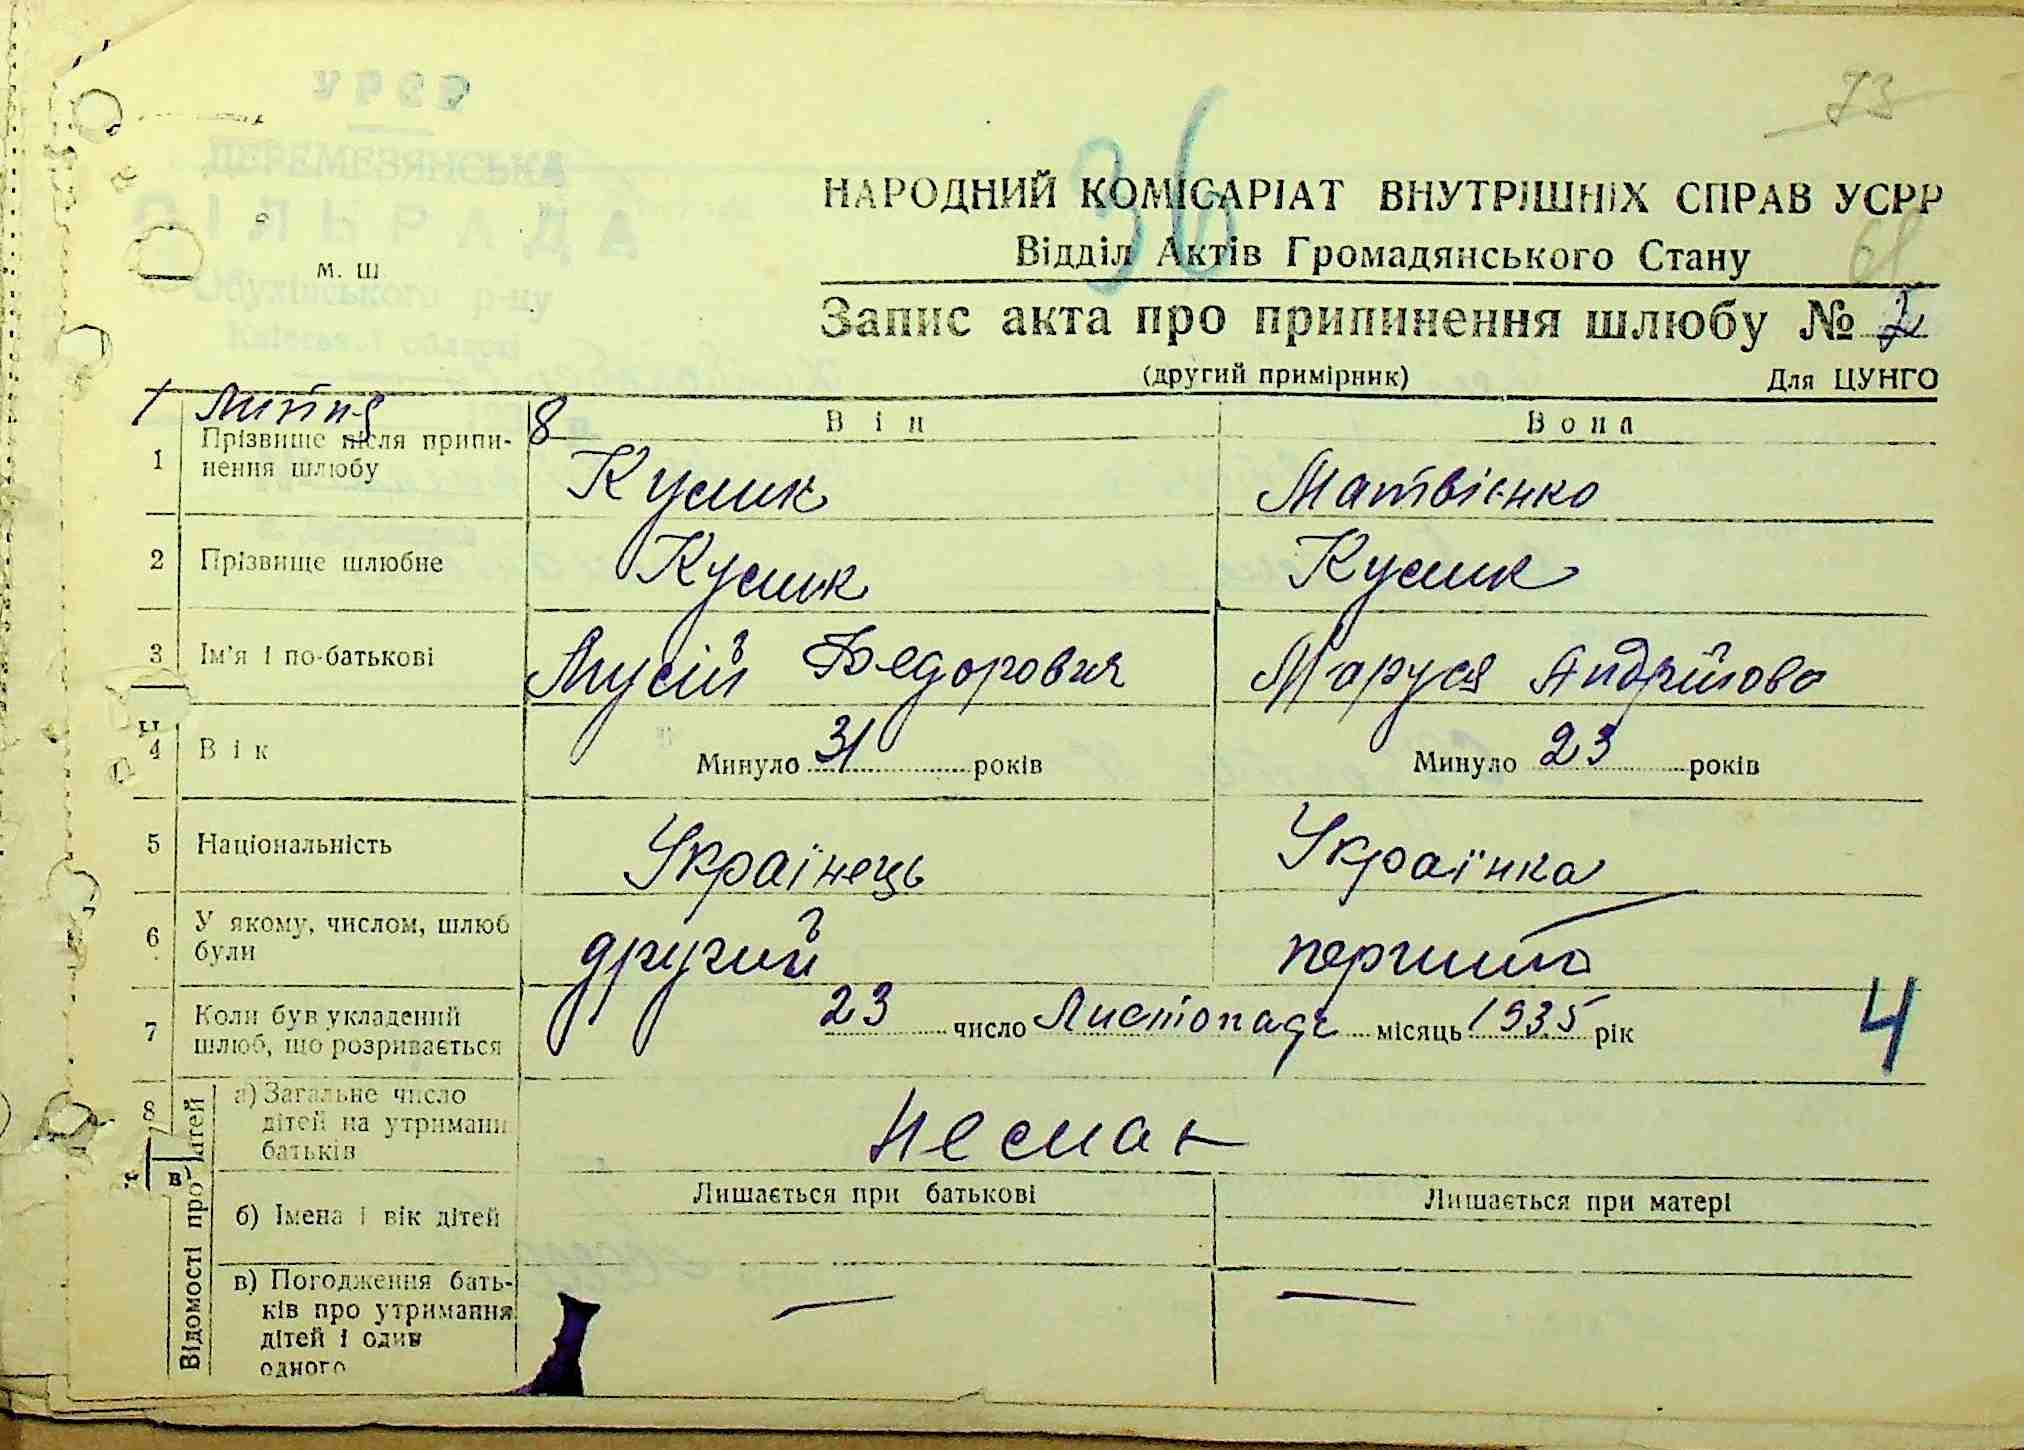 УРСР
ДЕРЕМЕЗЯНСЬКА
СІЛЬРАДА
Обухівського р-ну
Київської області
м. ш
36
73
61
НАРОДНИЙ КОМІСАРІАТ ВНУТРІШНІХ СПРАВ УСРР
Відділ Актів Громадянського Стану
Запис акта про припинення шлюбу № 2
(другий примірник) Для ЦУНГО
8
Він Вона
1 Прізвище після припи-
нення шлюбу
Кусик Матвієнко
2 Прізвище шлюбне Кусик Кусик
3 Ім'я і по-батькові Мусій Федорович Маруся Андріївна
4 Вік Минуло 31 років Минуло 23 років
5 Національність Українець Українка
6 У якому, числом, шлюб
були
другий перший
7 Коли був укладений
шлюб, що розривається
23 число Листопада місяць 1935 рік
4
8 Відомості про дітей
а) Загальне число
дітей на утриманн
батьків
не має
б) Імена і вік дітей Лишається при батькові Лишається при матері
в) Погодження бать-
ків про утримання
дітей і один
одного
— —